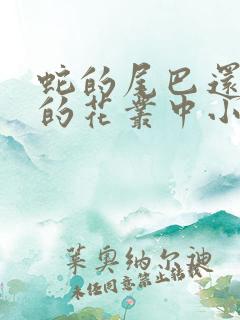 蛇的尾巴还
的花丛中小
莱奥纳尔迪
未经同意禁止转载